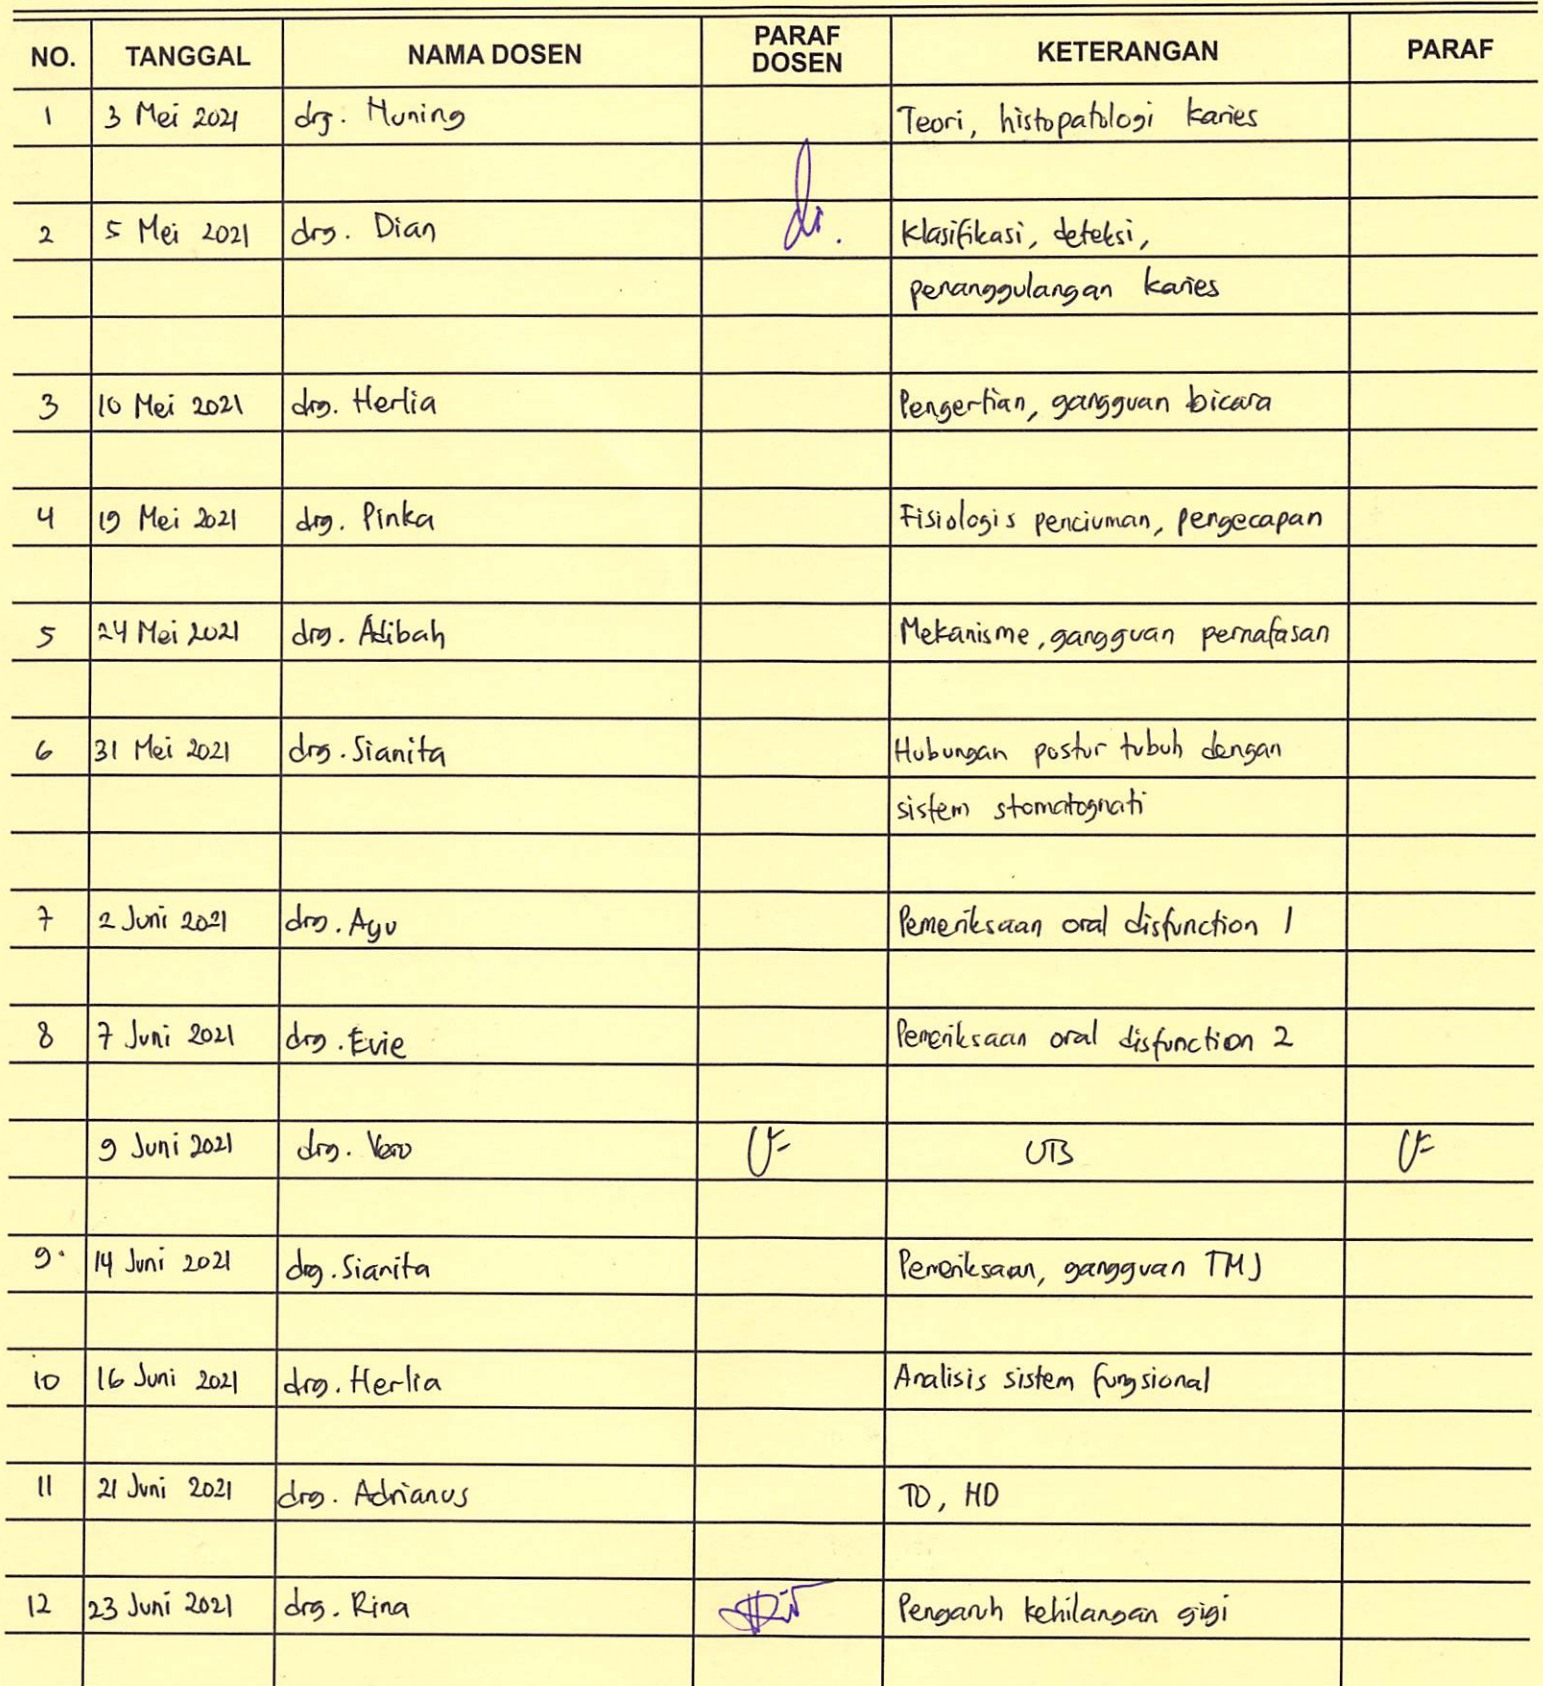 NO. TANGGAL NAMA DOSEN PARAF DOSEN KETERANGAN PARAF
1 3 Mei 2021 drg. Muning Teori, histopatologi karies
2 5 Mei 2021 drg. Dian Klasifikasi, deteksi,
penanggulangan karies
3 10 Mei 2021 drg. Herlia Pengertian, gangguan bicara
4 19 Mei 2021 drg. Pinka Fisiologis penciuman, pengecapan
5 24 Mei 2021 drg. Adibah Mekanisme, gangguan pernafasan
6 31 Mei 2021 drg. Sianita Hubungan postur tubuh dengan
sistem stomatognati
7 2 Juni 2021 drg. Ayu Pemeriksaan oral disfunction 1
8 7 Juni 2021 drg. Evie Pemeriksaan oral disfunction 2
9 Juni 2021 drg. Vero UTB
9. 14 Juni 2021 drg. Sianita Pemeriksaan, gangguan TMJ
10 16 Juni 2021 drg. Herlia Analisis sistem fungsional
11 21 Juni 2021 drg. Adrianus TD, HD
12 23 Juni 2021 drg. Rina Pengaruh kehilangan gigi